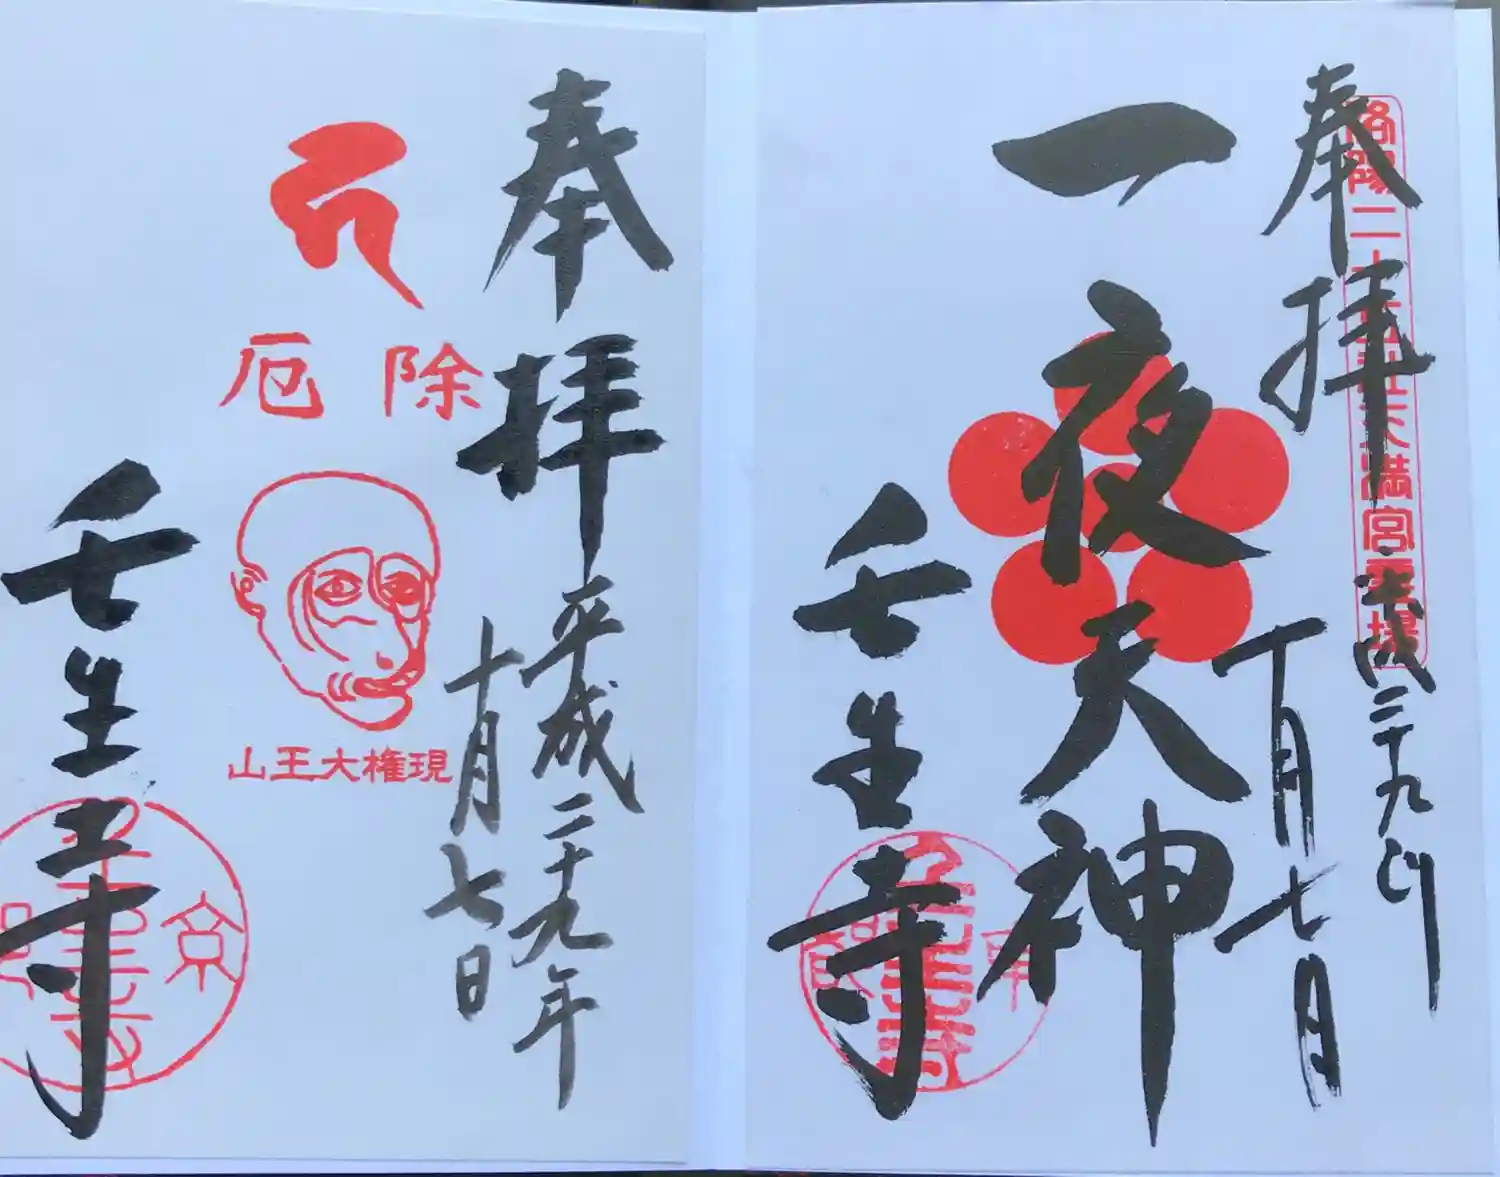 奉拝
洛陽二十五社天満宮霊場
平成二十九年
十月七日
一夜天神
壬生寺
奉拝
平成二十九年
十月七日
厄除
山王大権現
壬生寺